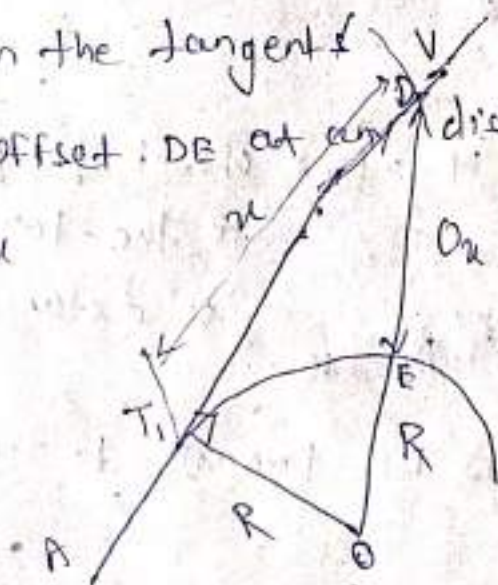 n the tangents
V
D
offset : DE at any dis
x
x
Ox
T1
E
R
R
O
A